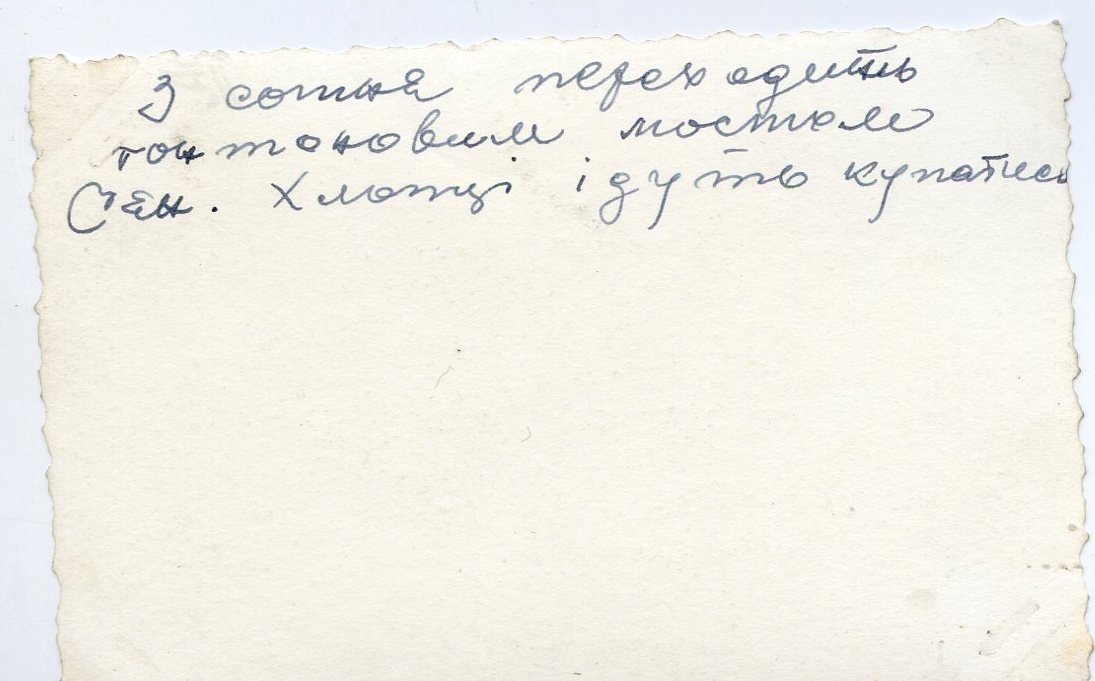 3 сотня переходить
понтоновим мостом
Сян. Хлопці ідуть купатись